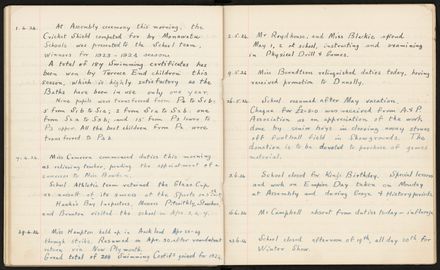 1.4.24. At Assembly ceremony this morning, the
Cricket Shield competed for by Manawatu
Schools was presented to the School team,
winners for 1923-1924 season.
A total of 184 Swimming certificates has
been won by Terrace End children this
season, which is highly satisfactory as the
Baths have been in use only one year.
Nine pupils were transferred from P2 to S1b;
5 from S1b to S1a; 5 from S1a to S2b. one
from S2a to S3b, and 15 from P3 lower to
P3 upper. All the best children from P1 were
transferred to P2b.
7.4.24. Miss Cameron commenced duties this morning
as relieving teacher, pending the appointment of a
successor to Miss Bowling.
School Athletic team retained the Shaw Cup
as result of its success at the Sports on
Hawke's Bay Inspectors, Messrs Pitcaithly, Strachan,
and Brunton visited the school on Apr. 3, 4, 7.
29.4.24 Miss Hampton held up in Auckland Apr 22-29
through strike. Resumed on Apr. 30, after roundabout
return via New Plymouth.
Grand total of 208 Swimming Certifs gained for 1924
2.5.24. Mr Roydhouse, and Miss Blackie spend
May 1, 2 at school, instructing and examining
in Physical Drill & Games.
9.5.24 Miss relinquished duties today, having
received promotion to D'mally.
26.5.24. School resumed after May vacation.
Cheque for was received from A & P
Association as an appreciation of the work
done by senior boys in clearing away stones
off football field in Showgrounds. The
donation is to be devoted to purchase of games
material.
3.6.24 School closed for King's Birthday. Special lessons
and work on Empire Day taken on Monday
at Assembly and during Geog. & History periods.
6.6.24 Mr Campbell absent from duties today - influenza
23.6.24. School closed afternoon of 19th, all day 20th for
Winter Show.